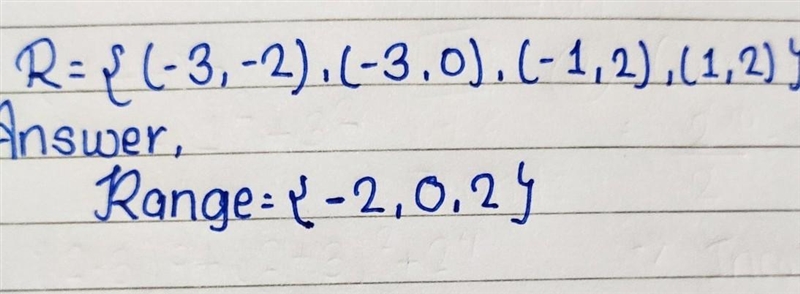 R = {(-3, -2), (-3, 0), (-1, 2), (1, 2)}
Answer,
Range = {-2, 0, 2}